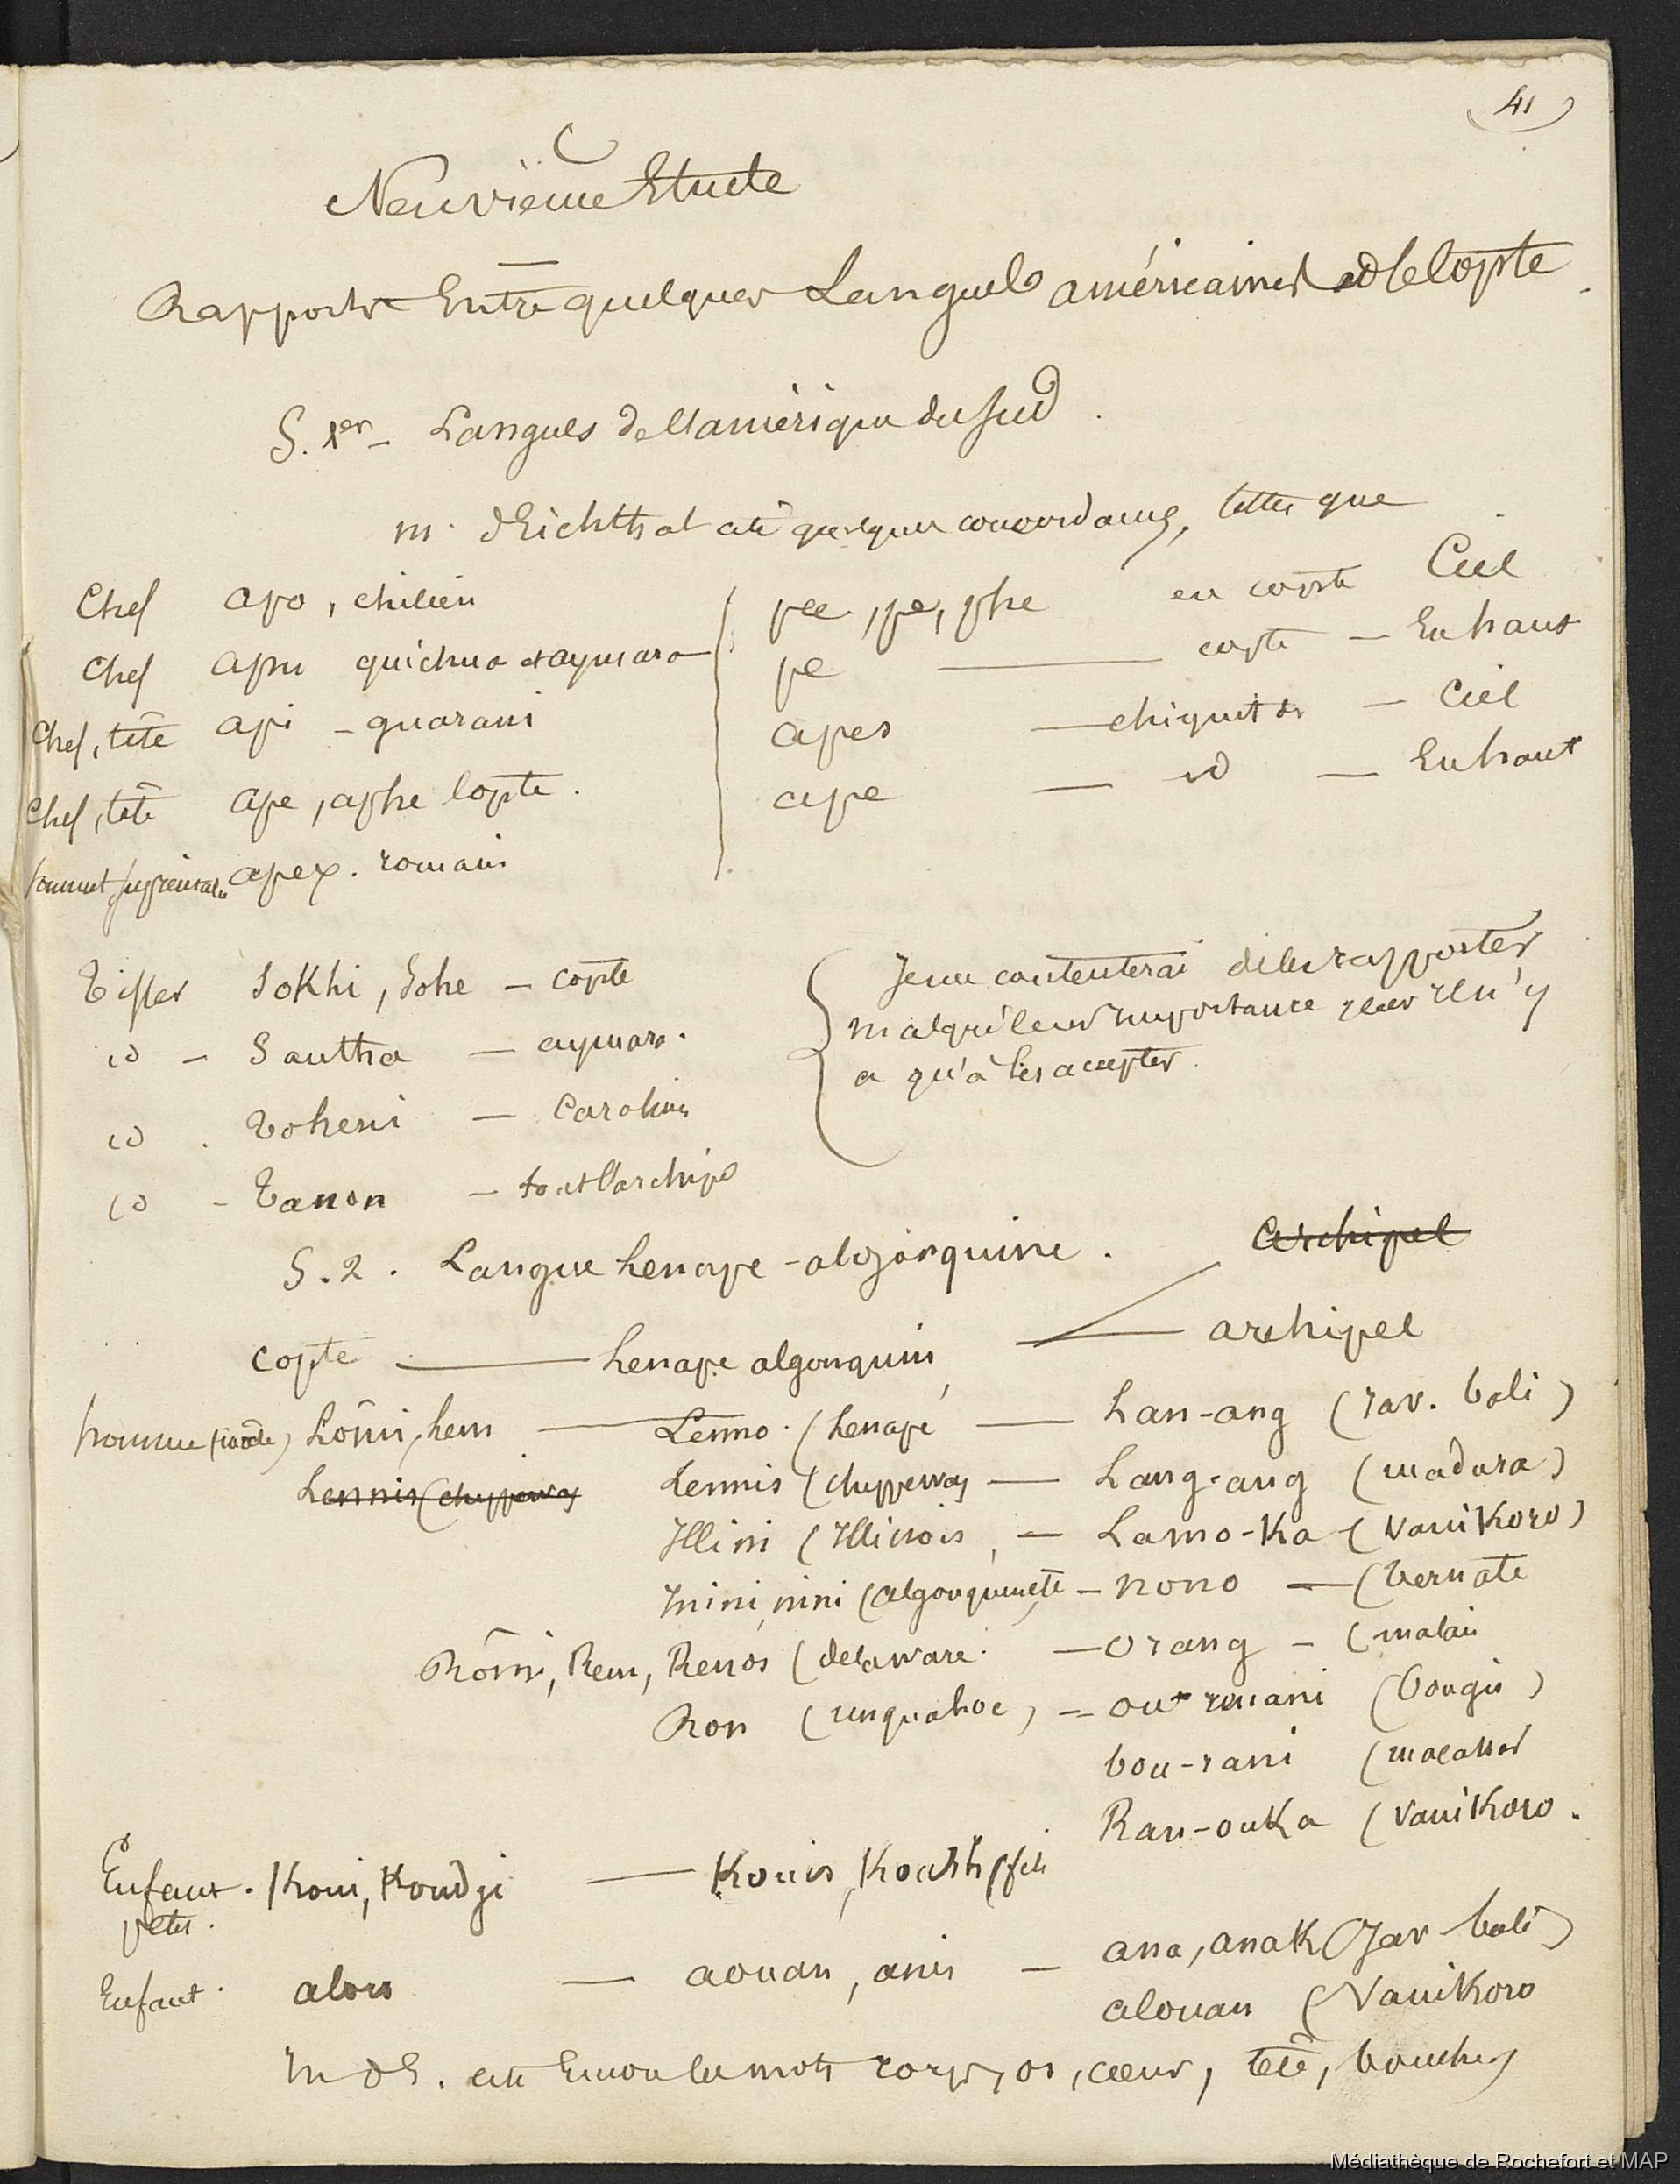 41
Neuvième Etude
Rapports Entre quelques Langues américaines et le Copte
§. 1er - Langues de l'amérique du Sud.
m. d'Eichthal cite quelques concordances, telles que
Chef apo, chilien
Chef apu quichua et aymara
Chef, tête api - guarani
Chef, tête ape, aphe Copte.
Sommet apex. romain
pee, pe, phe en copte Ciel
pe — copte — En haut
apes — chiquitos — Ciel
ape — id — En haut
Tisser Sokhi, Sohe - copte
id - Sautha - aymara.
id. Toheni - Carolines
id - Tanon - tout l'archipel
Je me contenterai de les rapporter
malgré leur importance, car il n'y
a qu'à les accepter.
§. 2. Langue Lenape-algonquine.
Archipel
copte — Lenape algonquin — archipel
homme (mâle) Lômi, Lem — Lenno. (Lenapé — Lan-ang (Jav. Bali)
Lennis (chyppeway
Lennis (chyppeway — Lang-ang (madura)
Illini (Illinois, — Lamo-Ka (Vanikoro)
Inini, nini (algonquin etc - nono — (Ternate
Rômi, Rem, Renos (delaware. — Orang - (malais
Ron (unquahoc) - out rouani (Bougis)
bou-rani (macassar
Ran-ouka (Vanikoro.
Enfant. Koui, Koudji — Kouis, (fils
petit.
Enfant. alou — aouan, anis — ana, anak (Jav - bali)
alouan (Vanikoro
M d'E. cite Encore les mots corps, os, cœur, tête, bouche,
Médiathèque de Rochefort et MAP